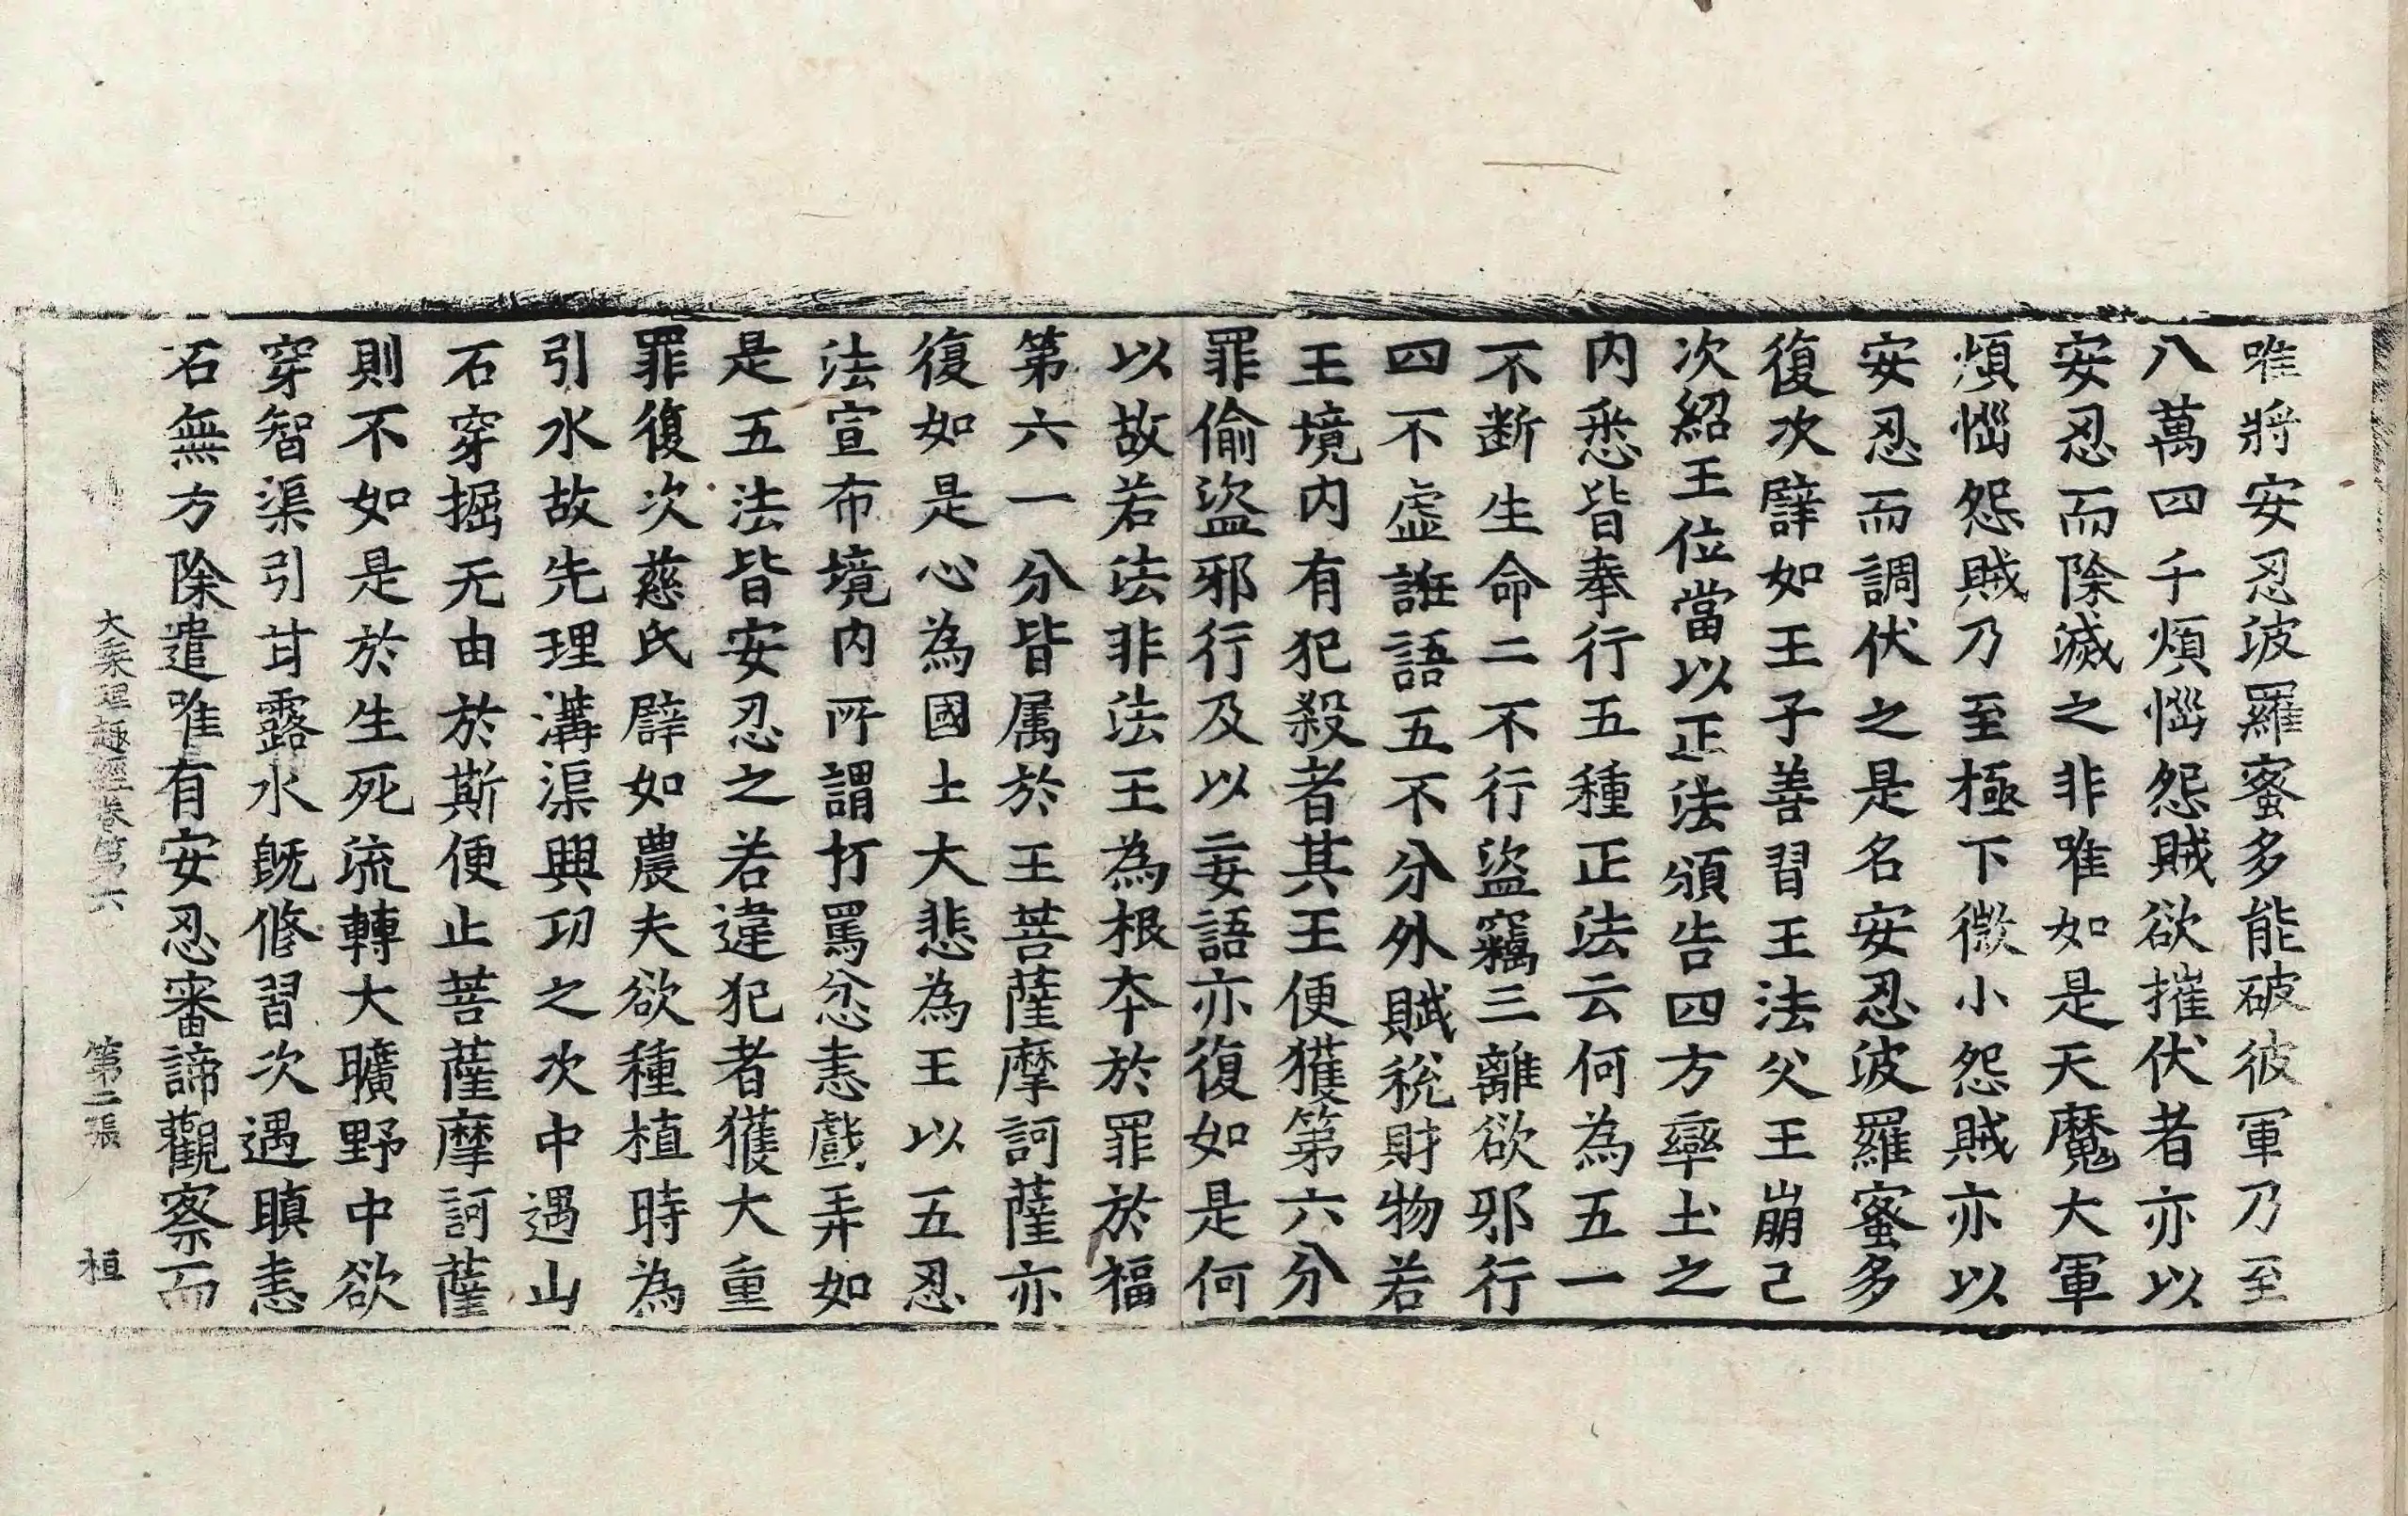 唯將安忍波羅蜜多能破彼軍乃至
八萬四千煩惱怨賊欲摧伏者亦以
安忍而除滅之非唯如是天魔大軍
煩惱怨賊乃至極下微小怨賊亦以
安忍而調伏之是名安忍波羅蜜多
復次譬如王子善習王法父王崩已
次紹王位當以正法頒告四方率土之
内悉皆奉行五種正法云何為五一
不断生命二不行盜竊三離欲邪行
四不虛誑語五不分外賦稅財物若
王境内有犯殺者其王便獲第六分
罪偷盜邪行及以妄語亦復如是何
以故若法非法王為根本於罪於福
第六一分皆属於王菩薩摩訶薩亦
復如是心為國土大悲為王以五忍
法宣布境内所謂打罵忿恚戲弄如
是五法皆安忍之若違犯者獲大重
罪復次慈氏譬如農夫欲種植時為
引水故先理溝渠興功之次中遇山
石穿掘无由於斯便止菩薩摩訶薩
則不如是於生死流轉大曠野中欲
穿智渠引甘露水既修習次遇瞋恚
石無方除遣唯有安忍審諦觀察而
大乘理趣經卷第六　第二張　桓